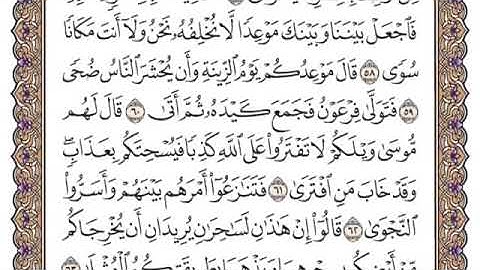 فَٱجْعَلْ بَيْنَنَا وَبَيْنَكَ مَوْعِدًا لَّا نُخْلِفُهُۥ نَحْنُ وَلَآ أَنتَ مَكَانًا
سُوًى ٥٨ قَالَ مَوْعِدُكُمْ يَوْمُ ٱلزِّينَةِ وَأَن يُحْشَرَ ٱلنَّاسُ ضُحًى
٥٩ فَتَوَلَّىٰ فِرْعَوْنُ فَجَمَعَ كَيْدَهُۥ ثُمَّ أَتَىٰ ٦٠ قَالَ لَهُم
مُّوسَىٰ وَيْلَكُمْ لَا تَفْتَرُوا۟ عَلَى ٱللَّهِ كَذِبًا فَيُسْحِتَكُم بِعَذَابٍ ۖ
وَقَدْ خَابَ مَنِ ٱفْتَرَىٰ ٦١ فَتَنَٰزَعُوٓا۟ أَمْرَهُم بَيْنَهُمْ وَأَسَرُّوا۟
ٱلنَّجْوَىٰ ٦٢ قَالُوٓا۟ إِنْ هَٰذَٰنِ لَسَٰحِرَٰنِ يُرِيدَانِ أَن يُخْرِجَاكُم